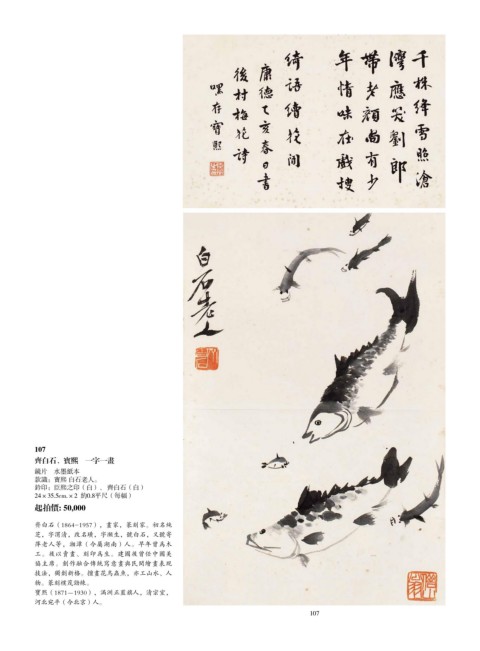 千株絳雪照滄
灣應笑劉郎
帶老顏尚有少
年情味在戲搜
綺語續花間
康德乙亥春日書
後村梅花詩
寶熙
白石老人
107
齊白石、寶熙　一字一畫
鏡片　水墨紙本
款識：寶熙 白石老人。
鈐印：臣熙之印（白）、齊白石（白）
24×35.5cm.×2 約0.8平尺（每幅）
起拍價: 50,000
齊白石（1864~1957），畫家，篆刻家。初名純
芝，字渭清，改名璜，字瀕生，號白石，又號寄
萍老人等，湘潭（今屬湖南）人。早年曾為木
工，後以賣畫、刻印為生。建國後曾任中國美
協主席。創作融合傳統寫意畫與民間繪畫表現
技法，獨創新格。擅畫花鳥蟲魚，亦工山水、人
物。篆刻樸茂勁練。
寶熙（1871~1930），滿洲正藍旗人，清宗室，
河北宛平（今北京）人。
107